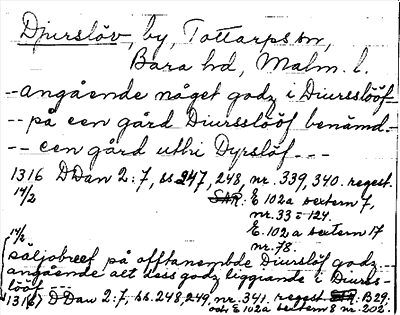 Djurslöv, by, Tottarps sn,
Bara hd, Malm. l.
--angående något godz i Diurslööf
-- på een gård Diursslööf benämd.-
-- een gård uthi Dyrslöf - - -
1316 DDan 2:7, ss. 247, 248, nr. 339, 340. regest.
14/2 SAR: E 102a sextern 7,
nr. 33 = 124.
E. 102a sextern 17
nr. 78.
14/2
säljobreef på offtanembde Diurslöf godz --
angående alt dess godz liggiande i Diurs-
lööf ---
1316) DDan 2:7, ss. 248, 249, nr. 341. regest SAR: B29.
och E 102a sextern 8 nr. 202.